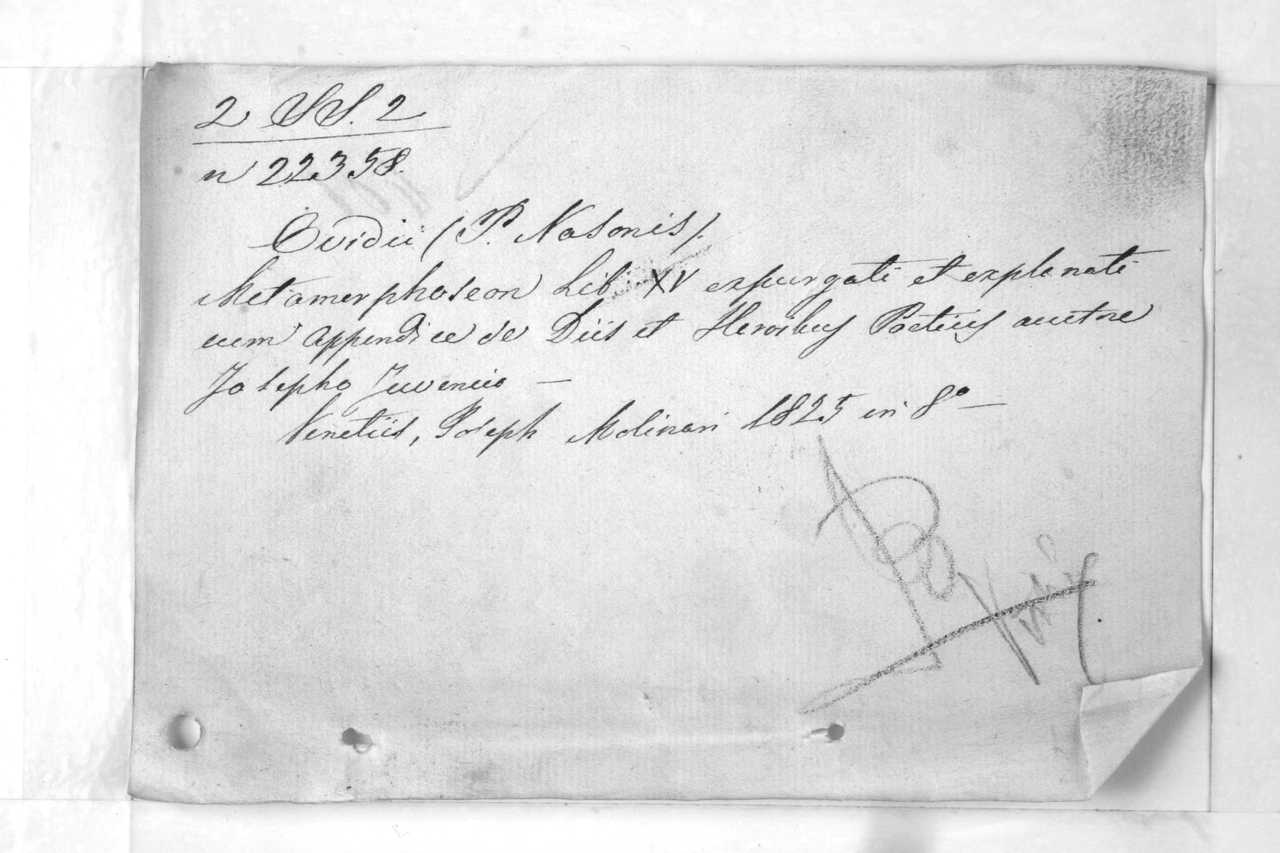 2 SS. 2
n 22358.
Ovidii (P. Nasonis).
Metamorphoseon Lib. XV expurgati et explanati
cum appendice de Diis et Heroibus Poeticis auctore
Josepho Juvencio —
Venetiis, Joseph Molinari 1825 in 8º —